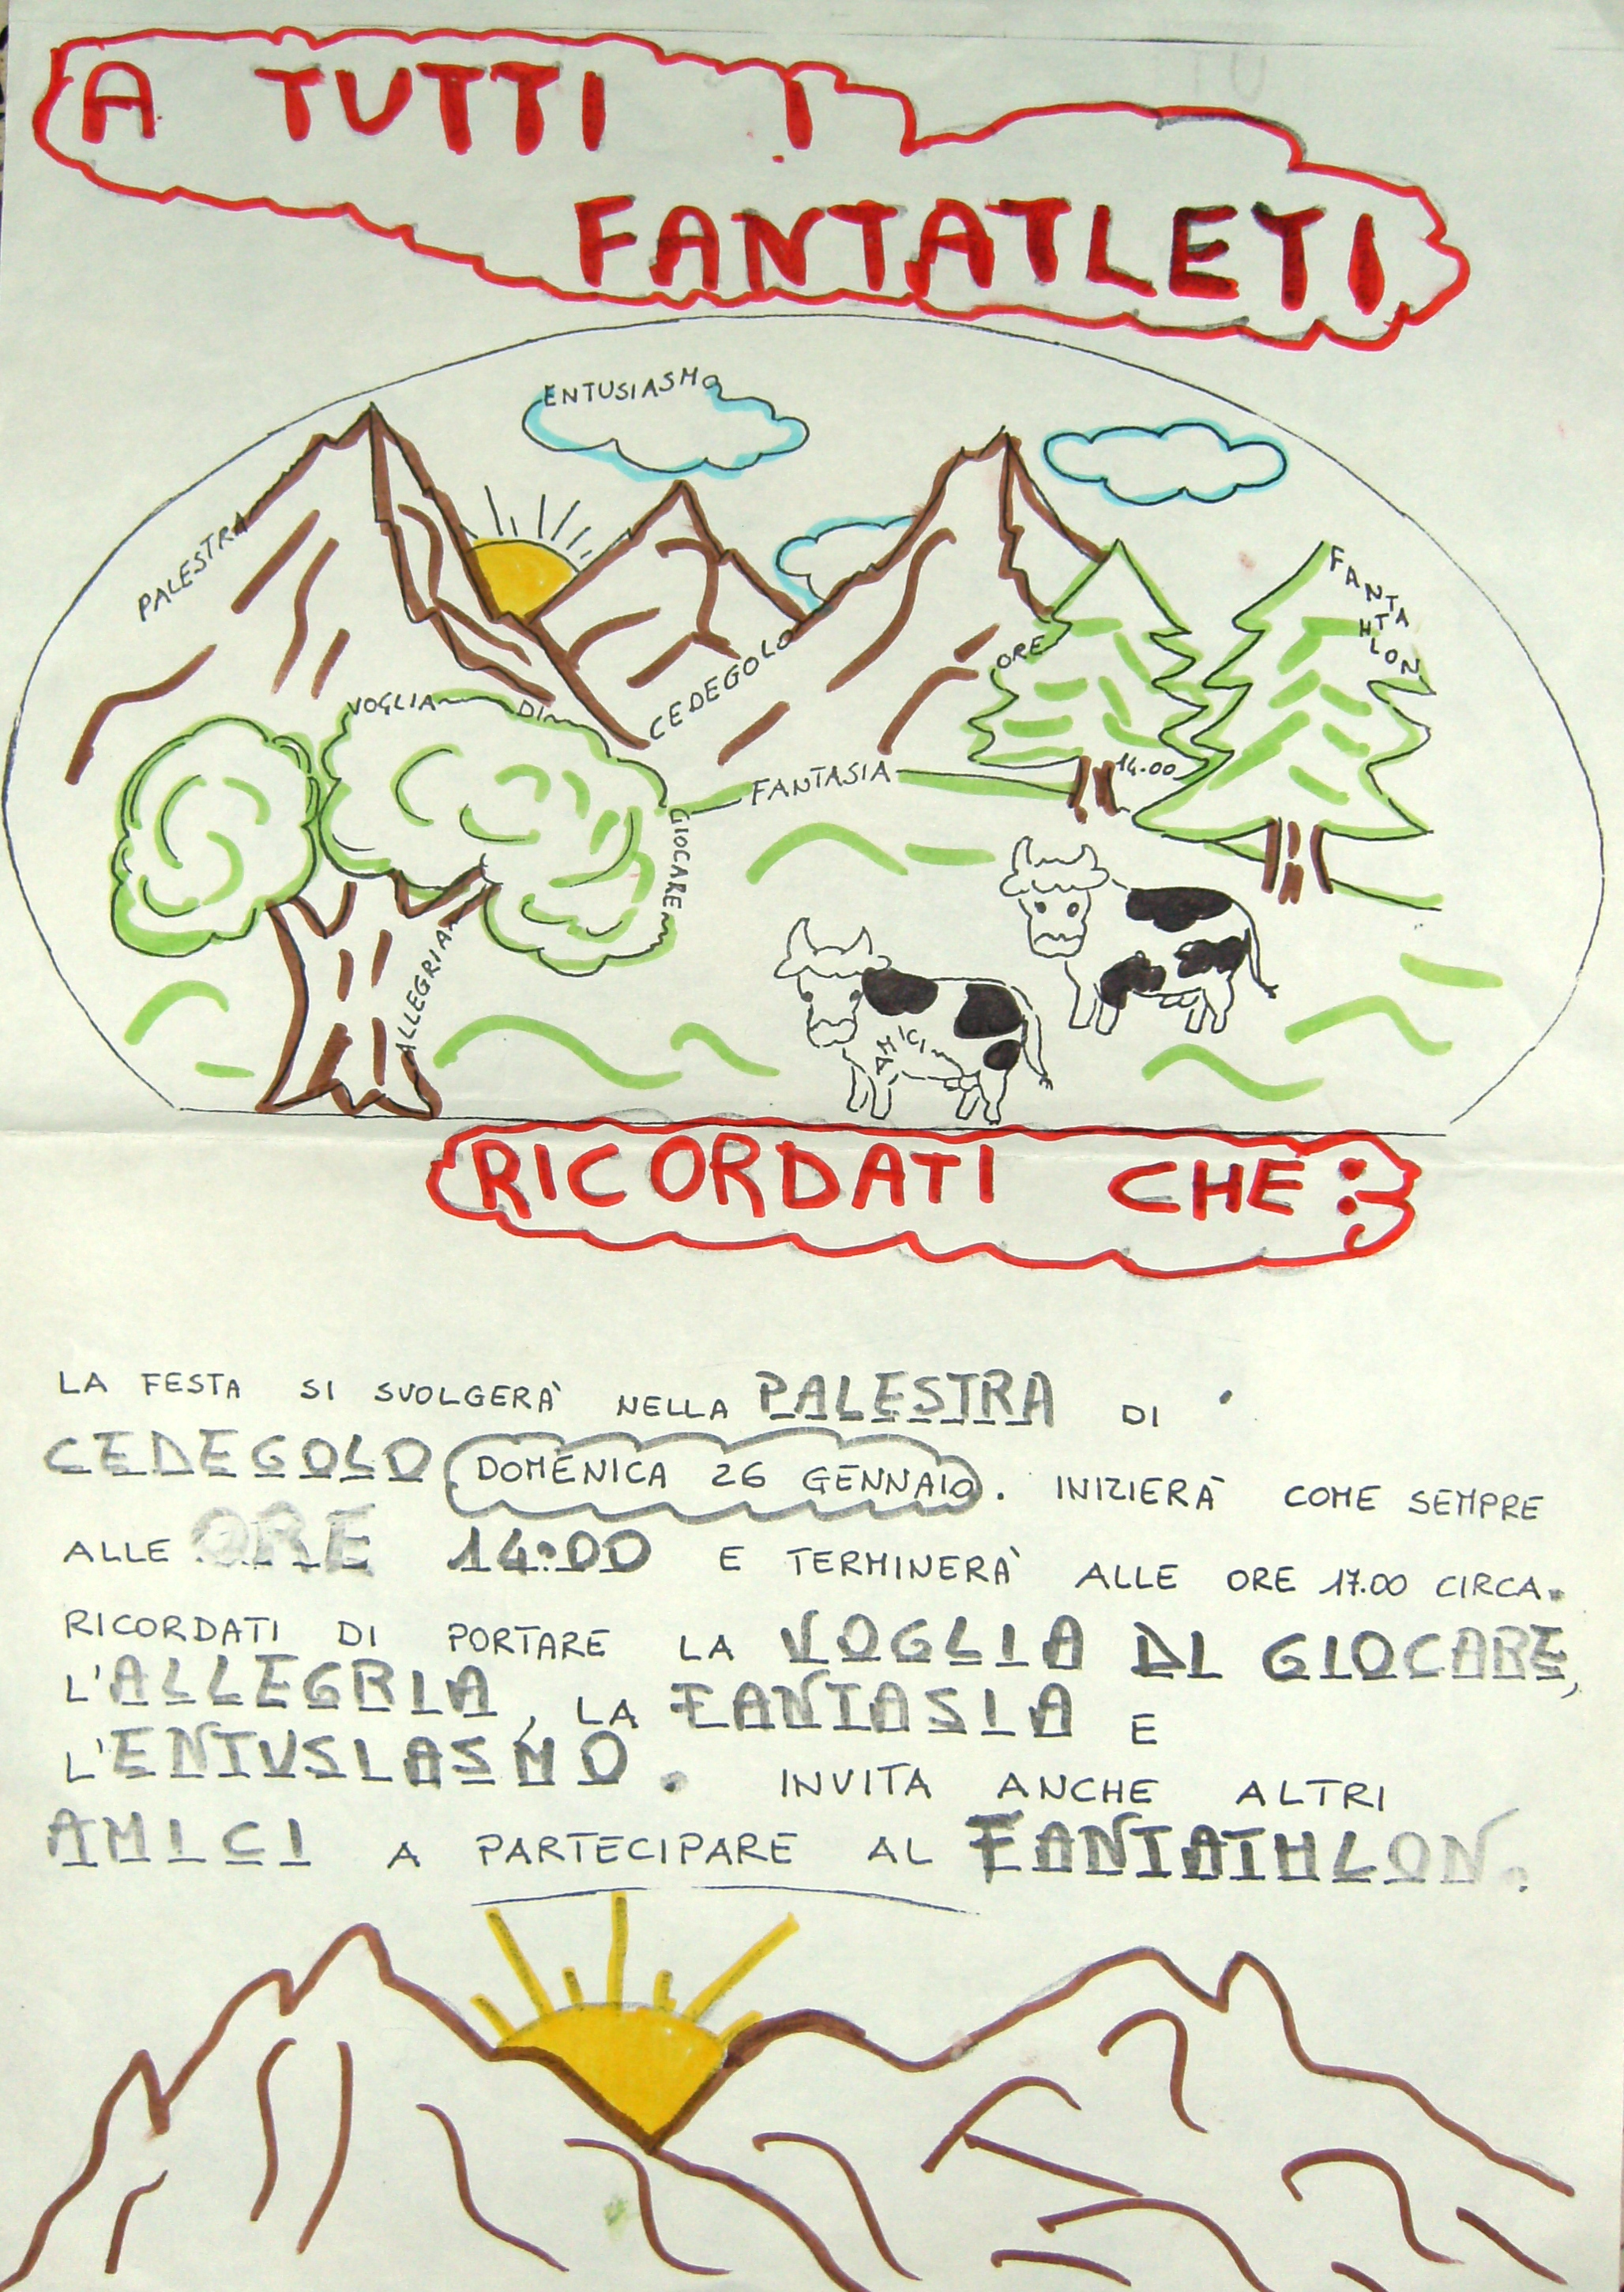 A TUTTI I
FANTATLETI
ENTUSIASMO
PALESTRA
FANTA
HTLON
ORE
CEDEGOLO
VOGLIA DI
14.00
FANTASIA
GIOCARE
ALLEGRIA
AMICI
RICORDATI CHE:
LA FESTA SI SVOLGERÀ NELLA PALESTRA DI
CEDEGOLO DOMENICA 26 GENNAIO. INIZIERÀ COME SEMPRE
ALLE ORE 14:00 E TERMINERÀ ALLE ORE 17.00 CIRCA.
RICORDATI DI PORTARE LA VOGLIA DI GIOCARE,
L'ALLEGRIA, LA FANTASIA E
L'ENTUSIASMO. INVITA ANCHE ALTRI
AMICI A PARTECIPARE AL FANTATHLON.